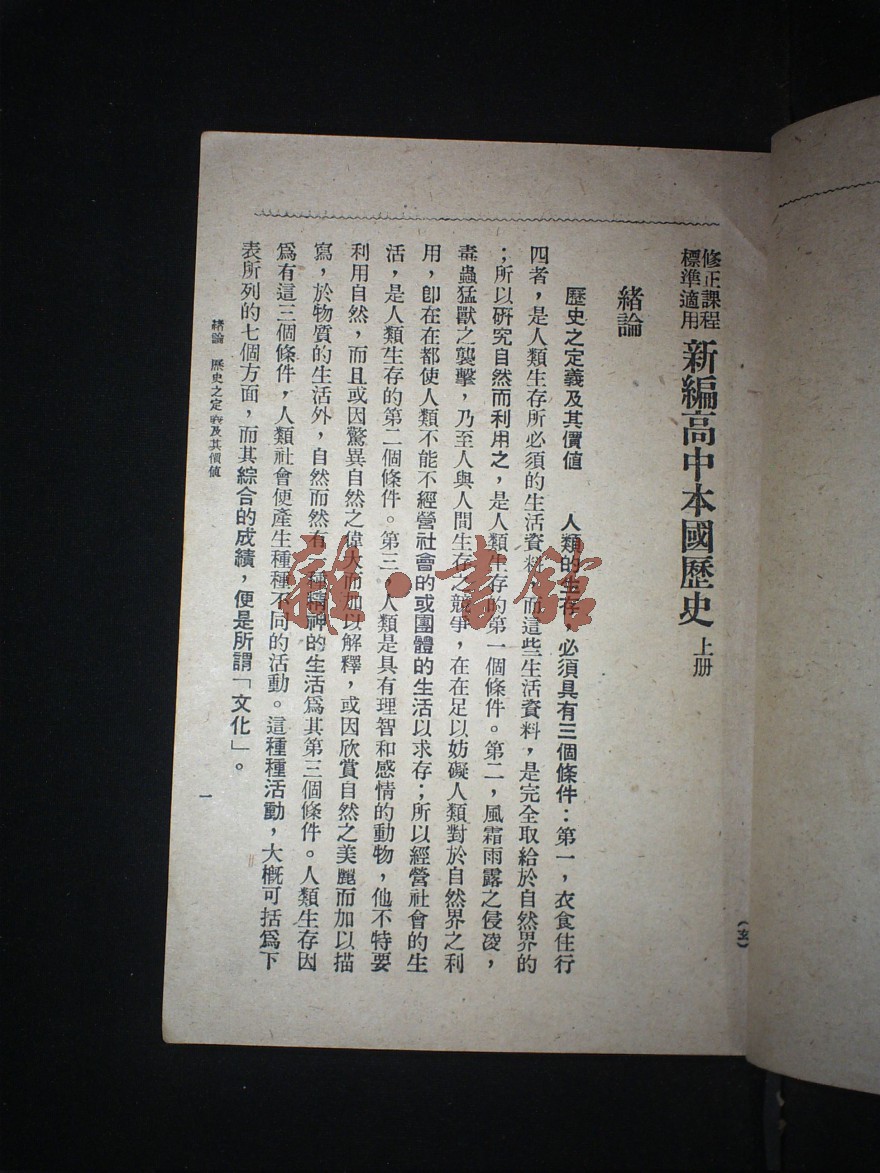 修正課程
標準適用
新編高中本國歷史 上册
緒論
歷史之定義及其價值 人類的生存，必須具有三個條件：第一，衣食住行
四者，是人類生存所必須的生活資料，而這些生活資料，是完全取給於自然界的
；所以研究自然而利用之，是人類生存的第一個條件。第二，風霜雨露之侵凌，
毒蟲猛獸之襲擊，乃至人與人間生存之競爭，在在足以妨礙人類對於自然界之利
用，卽在在都使人類不能不經營社會的或團體的生活以求存；所以經營社會的生
活，是人類生存的第二個條件。第三，人類是具有理智和感情的動物，他不特要
利用自然，而且或因驚異自然之偉大而加以解釋，或因欣賞自然之美麗而加以描
寫，於物質的生活外，自然而然有一種精神的生活爲其第三個條件。人類生存因
爲有這三個條件，人類社會便產生種種不同的活動。這種種活動，大概可括爲下
表所列的七個方面，而其綜合的成績，便是所謂「文化」。
緒論 歷史之定義及其價値
一
（玄）
雜·書館